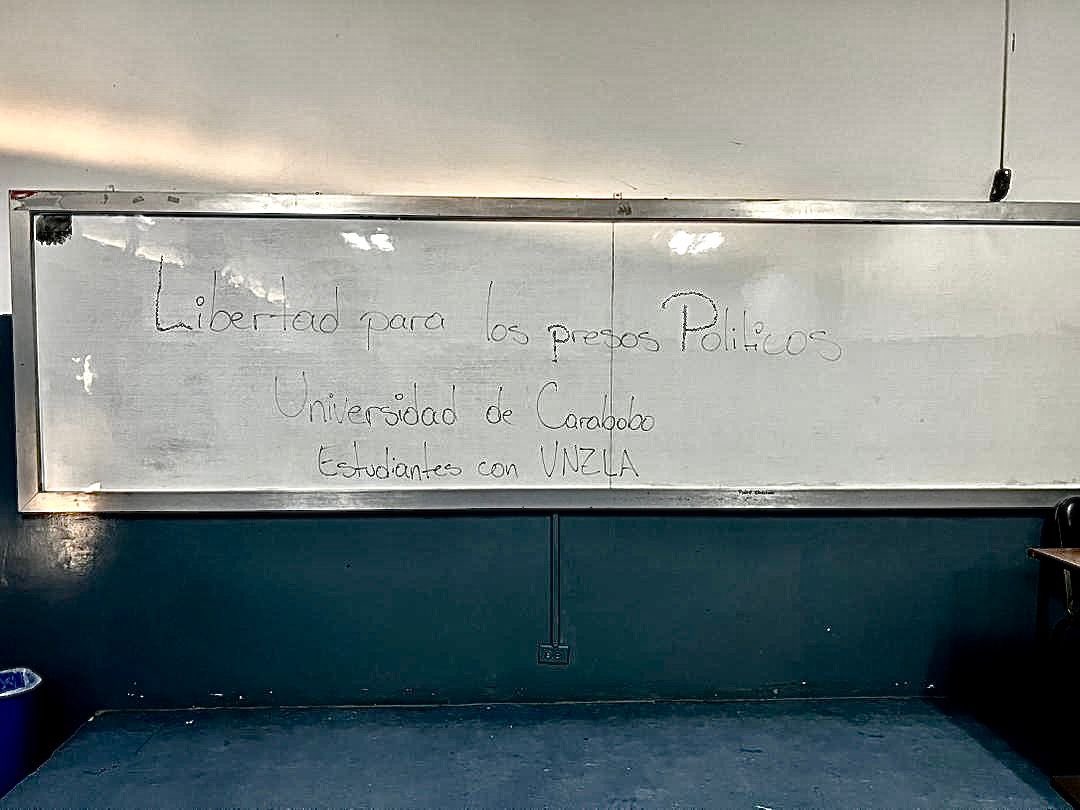 Libertad para los presos Politicos
Universidad de Carabobo
Estudiantes con VNZLA